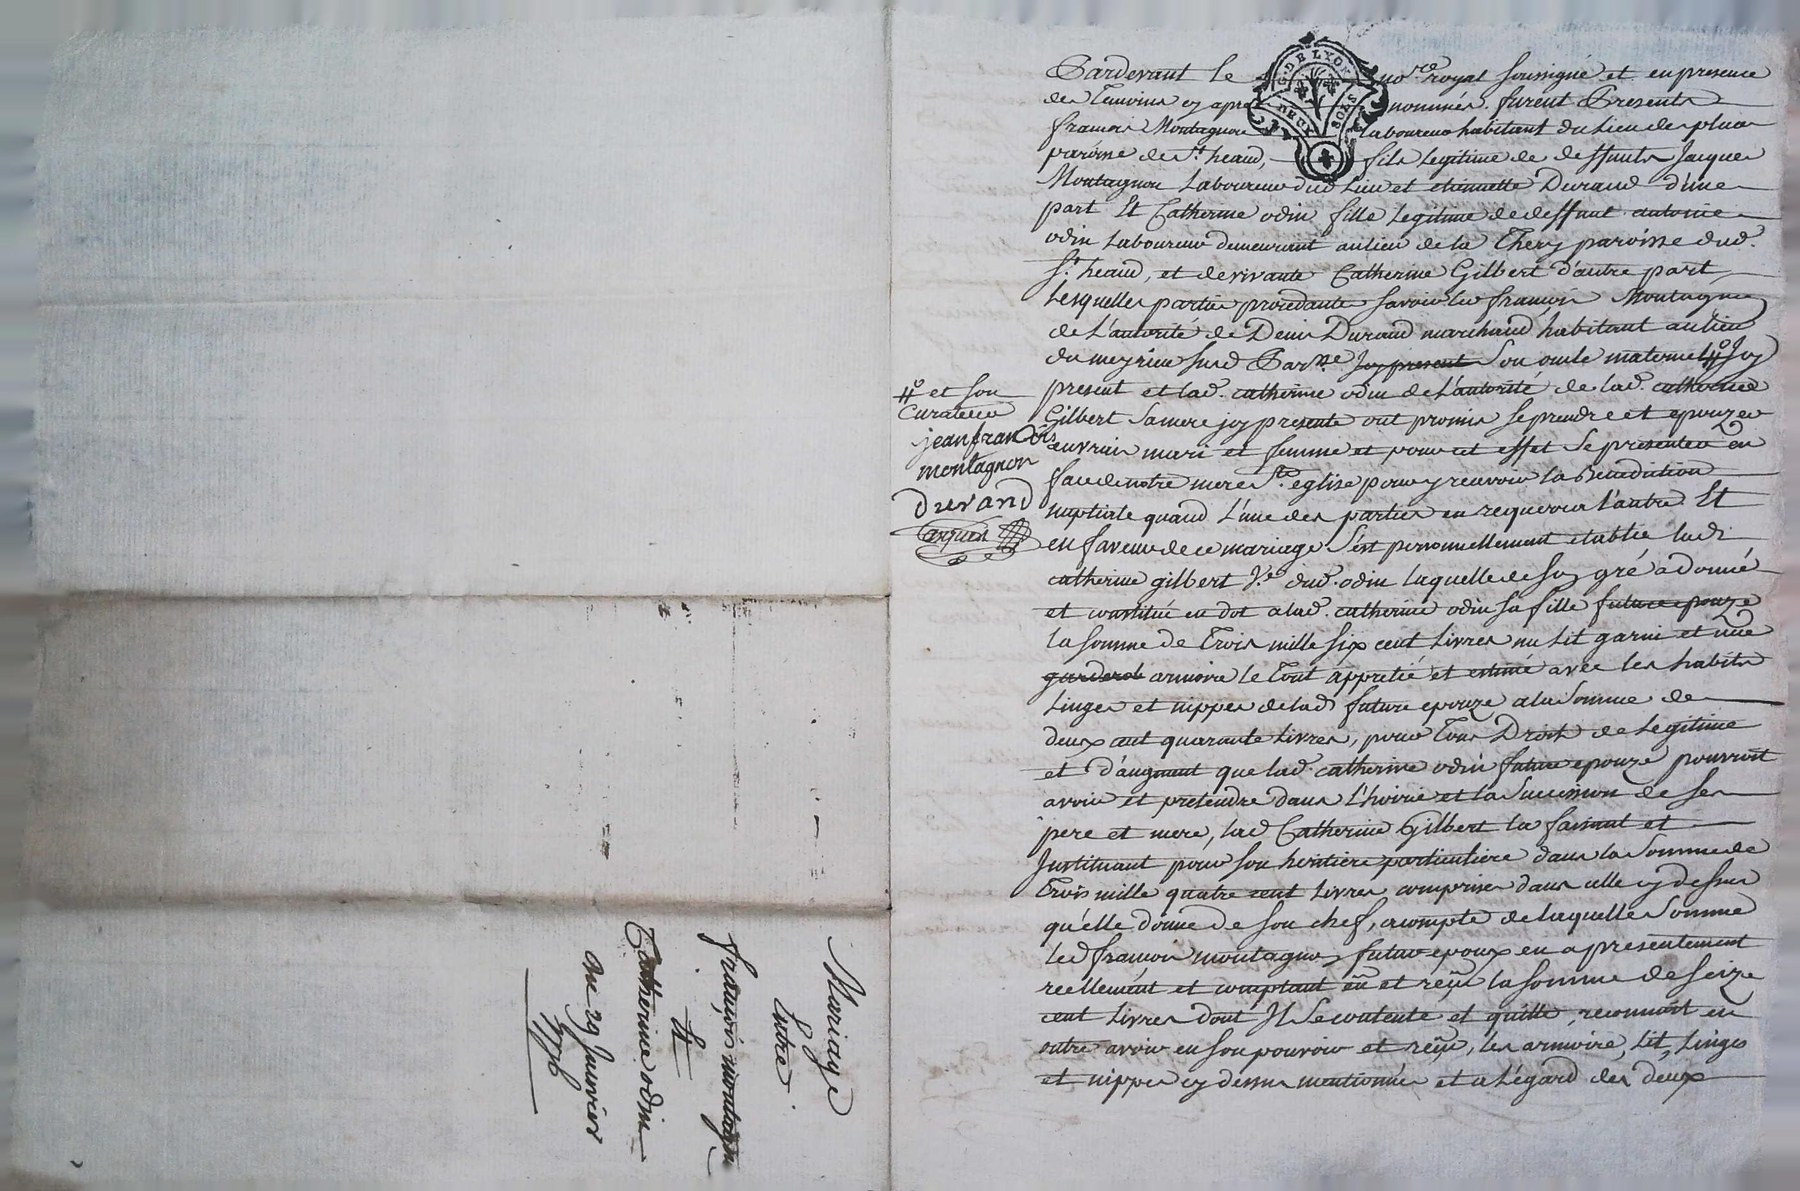 Mariage
Entre
francois montagnon
Et
Catherine odin
Du 29 Janvier
1776
G. DE LYON
DEUX SOLS
Pardevant le no.re royal soussigné et en presence
des Temoins cy apres nommés. furent Presents
francois Montagnon laboureur habitant du Lieu de
paroisse de S.t heand, fils Legitime de deffunts Jacques
Montagnon Laboureur dud Lieu et etiennette Durand d'une
part Et Catherine odin fille Legitime de deffunt antoine
odin Laboureur demeurant au lieu de la Thery paroisse dud.
S.t heand, et de vivante Catherine Gilbert d'autre part,
Lesquelles parties procedantes savoir led francois Montagnon
de L'autorité de Denis Durand marchand habitant au lieu
du meyrieu susd Par.sse Jcy present son oncle maternel # Jcy
present et lad. catherine odin de L'autorité de lad. catherine
Gilbert sa mere jcy presente ont promis se prendre et epouzer
en vrais mari et femme et pour cet effet se presenter en
face de notre mere S.te eglise pour y recevoir la Benediction
nuptiale quand L'une des parties en requerera l'autre Et
en faveur de ce mariage S'est personnellement etablie lad.
catherine gilbert V.e dud. odin laquelle de son gré a donné
et constitué en dot a lad. catherine odin sa fille future epouze
la somme de Trois mille six cent Livres un Lit garni et une
garderob armoire le Tout appretié et estimé avec les habits
Linges et nippes de lad future epouze a la Somme de
deux cent quarante Livres, pour Tous Droits de Legitime
et d'augment que lad. catherine odin future epouze pourroit
avoir et pretendre dans L'hoirie et la Succession de ses
pere et mere, lad Catherine Gilbert la faisant et
Jnstituant pour son heritiere particuliere dans la Somme de
Trois mille quatre cent Livres comprises dans celle cy dessus
qu'elle donne de son chef, a compte de laquelle Somme
led francois montagnon futur epoux en a presentement
reellement et comptant eû et reçu la somme de seize
cent Livres dont Jl Se contente et quitte, reconnoit en
outre avoir en son pouvoir et reçu, les armoire, Lit, Linges
et nippes cy dessus mentionnés et a L'égard des deux
# et son
Curateur
jean francois
montagnon
Durand